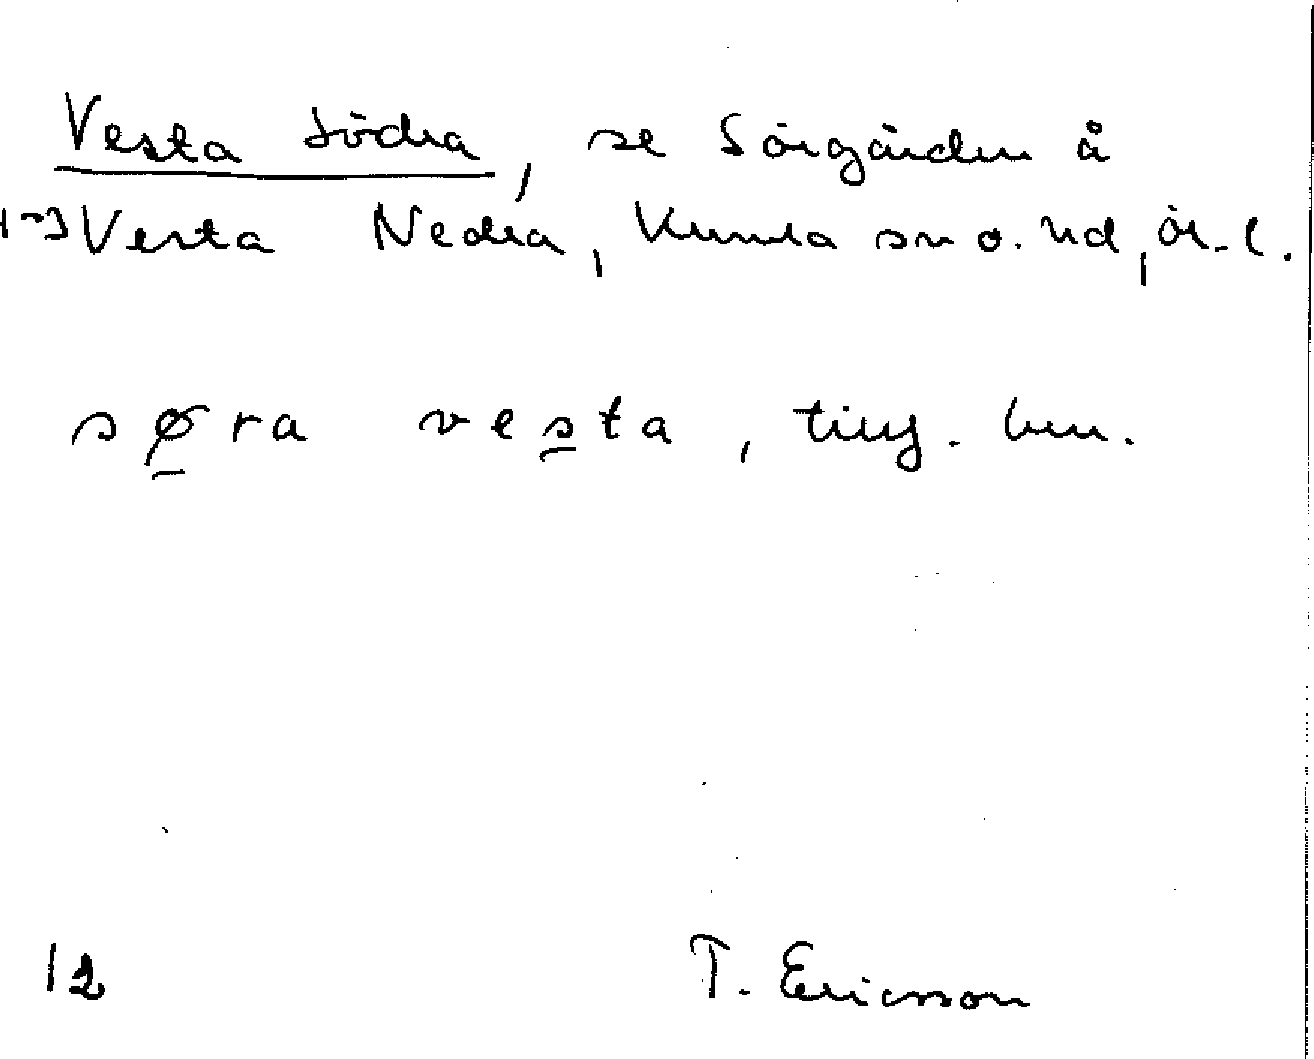 Vesta Södra, se Sörgården å
1-3 Vesta Nedra, Kumla sn o. hd, Ör. l.
søra vesta, tidig. ben.
12
T. Ericsson